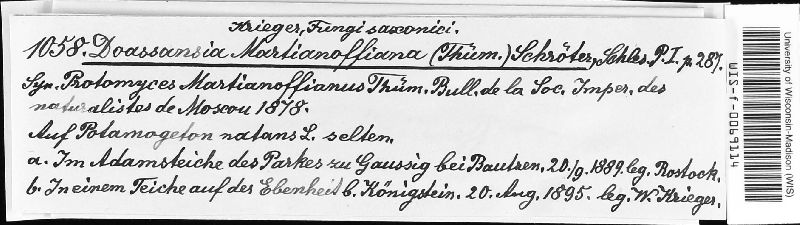 Krieger, Fungi saxonici.
1058. Doassansia Martianoffiana (Thüm.) Schröter, Schles. P. I. p. 287.
Syn. Protomyces Martianoffianus Thüm. Bull. de la Soc. Imper. des
naturalistes de Moscou 1878.
Auf Potamogeton natans L. selten.
a. Im Adamsteiche des Parkes zu Gaussig bei Bautzen, 20./9. 1889. leg. Rostock.
b. In einem Teiche auf der Ebenheit b. Königstein. 20. Aug. 1895. leg. W. Krieger.
WIS-f-0069114
University of Wisconsin-Madison (WIS)